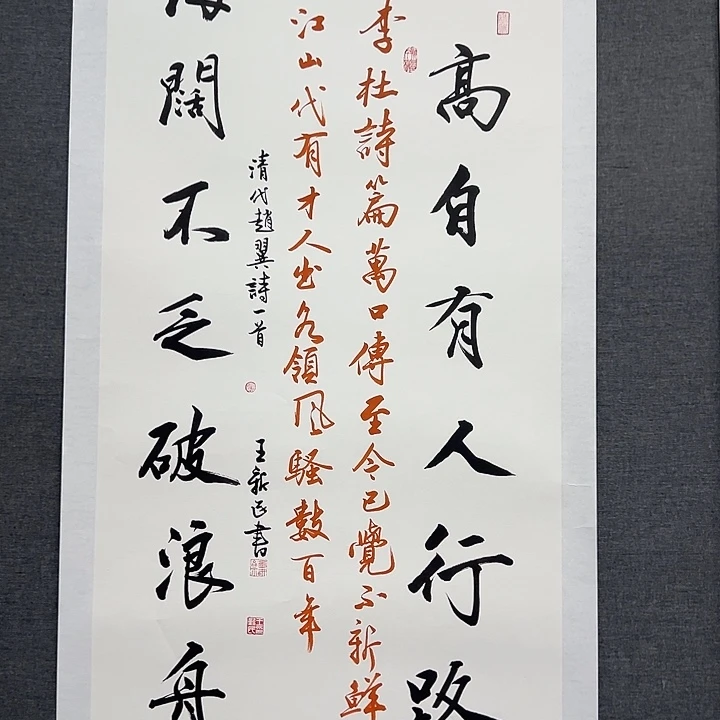 高自有人行路
李杜詩篇萬口傳至今已覺不新鮮
江山代有才人出各領風騷數百年
清代趙翼詩一首
王新民書
海闊不乏破浪舟